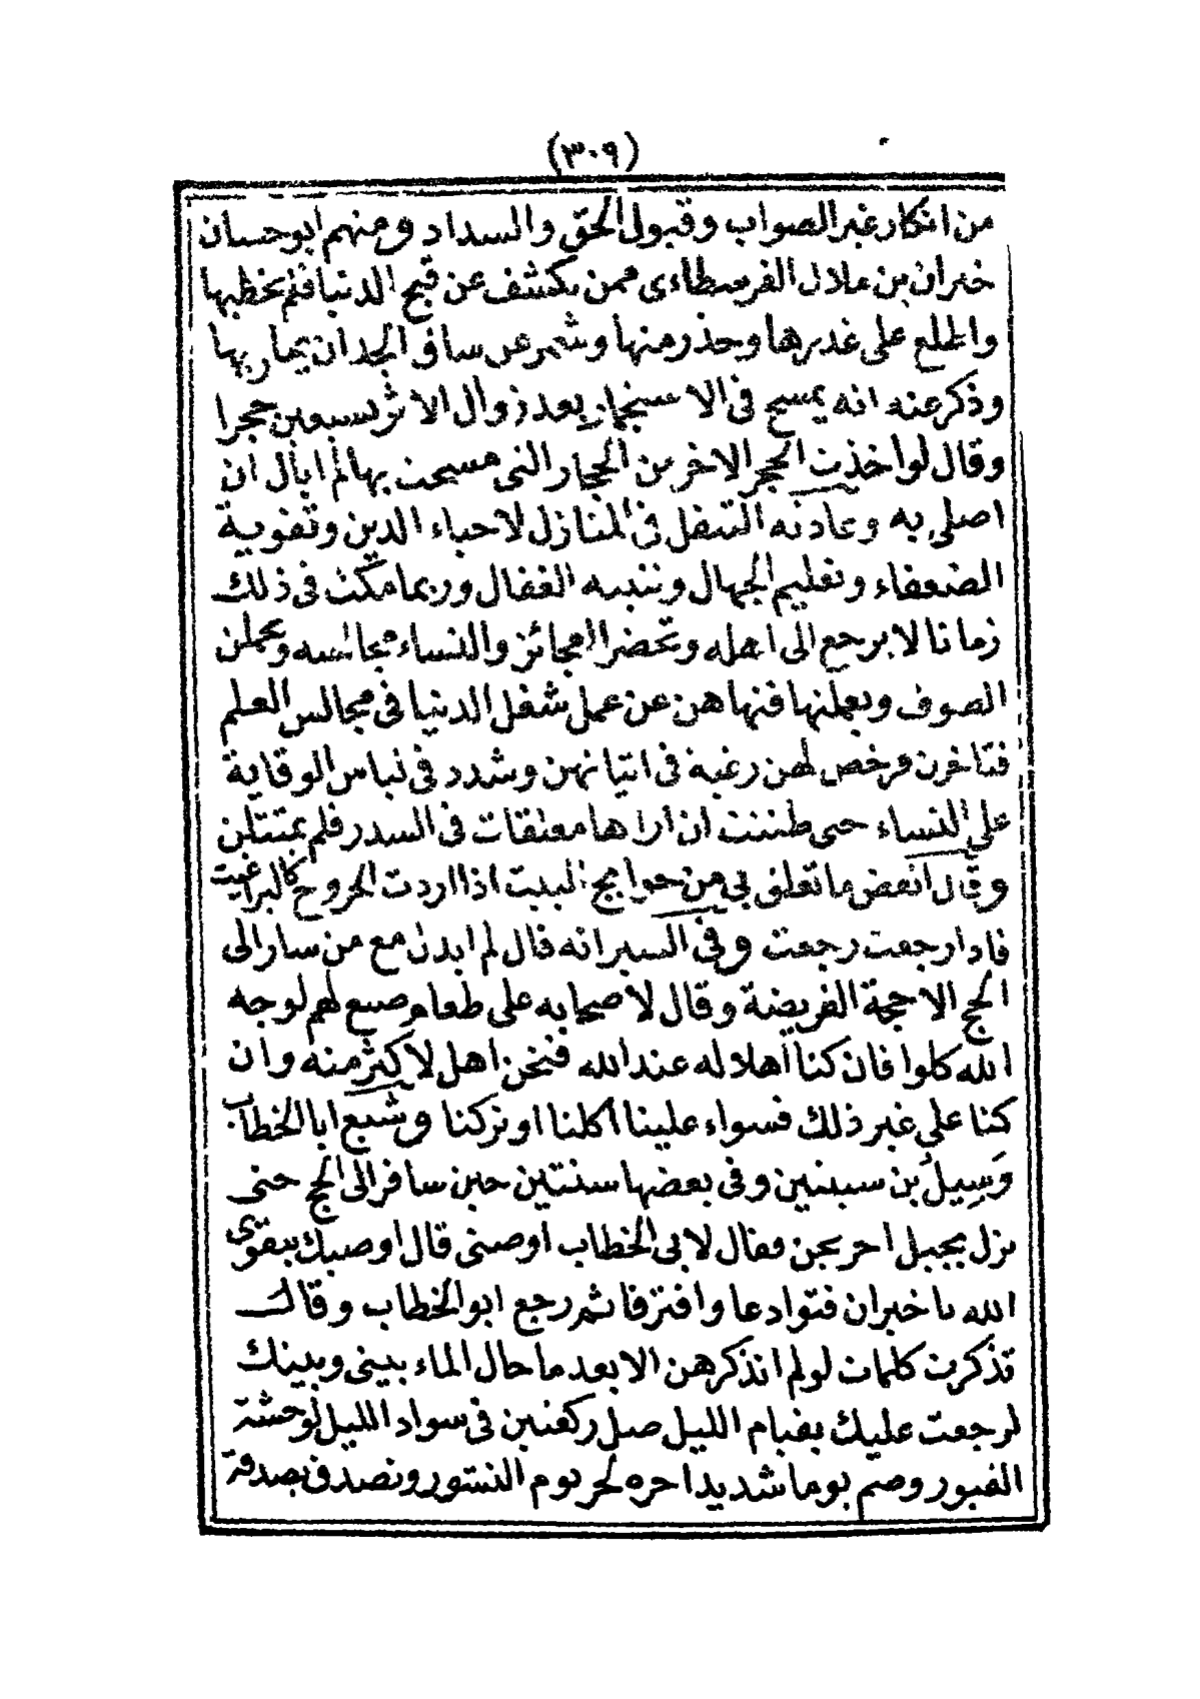 (٣٠٩)
من انكار غير الصواب وقبول الحق والسداد ومنهم ابو حسان
خيران بن ملال الفرسطاءى ممن كشف عن قبح الدنيا فلم يخطبها
واطلع على غدرها وحذر منها وشمر عن ساق الجد ان يمار بها
وذكر عنه انه يمسح فى الاستجمار بعد زوال الاثر بسبعين حجرا
وقال لو اخذت الحجر الاخر من الحجار التى مسحت بها لم ابال ان
اصلى به وعادته التنقل فى المنازل لاحياء الدين وتقوية
الضعفاء وتعليم الجهال وتنبيه الغفال وربما مكث فى ذلك
زمانا لا يرجع الى اهله وتحضر العجائز والنساء مجالسه ويحملن
الصوف ويعملنها فنهاهن عن عمل شغل الدنيا فى مجالس العلم
فتاخرن فرخص لهن رغبة فى اتيانهن وشدد فى لباس الوقاية
على النساء حتى ظننت ان اراها معلقات فى السدر فلم يمتثلن
وقال انفض ما تعلق بى من حوايج البيت اذا اردت الخروج كالبراغيت
فاذا رجعت رجعت وفى السير انه قال لم ابدل مع من سار الى
الحج الا حجة الفريضة وقال لاصحابه على طعام صنع لهم لوجه
الله كلوا فان كنا اهلا له عند الله فنحن اهل لاكثر منه وان
كنا على غير ذلك فسواء علينا اكلنا او تركنا وشيع ابا الخطاب
وَسِيلَ بن سينتين وفى بعضها سنتين حين سافر الى الحج حتى
نزل بجبل احريجن فقال لابى الخطاب اوصنى قال اوصيك بتقوى
الله يا خيران فتوادعا وافترقا ثم رجع ابو الخطاب وقال
تذكرت كلمات لو لم اتذكرهن الا بعد ما حال الماء بينى وبينك
لرجعت عليك بقيام الليل صل ركعتين فى سواد الليل لوحشة
القبور وصم يوما شديدا حره لحر يوم النشور وتصدق بصدقة